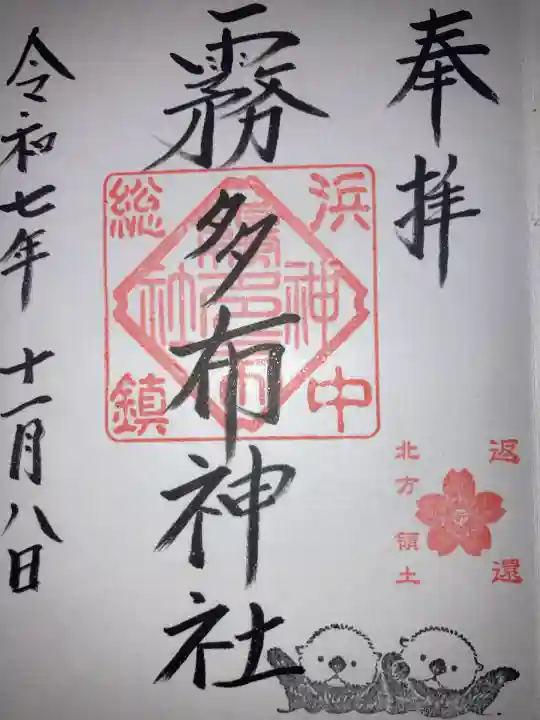 奉拝
霧多布神社
浜中
総鎮
霧多布
神社
令和七年 十一月八日
返還
北方領土